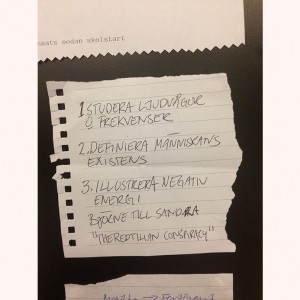 sedan skolstart
1 STUDERA LJUDVÅGOR
& FREKVENSER
2. DEFINIERA MÄNNISKANS
EXISTENS
3. ILLUSTRERA NEGATIV
ENERGI
BJÖRNE TILL SANDRA
"THE REPTILIAN CONSPIRACY"